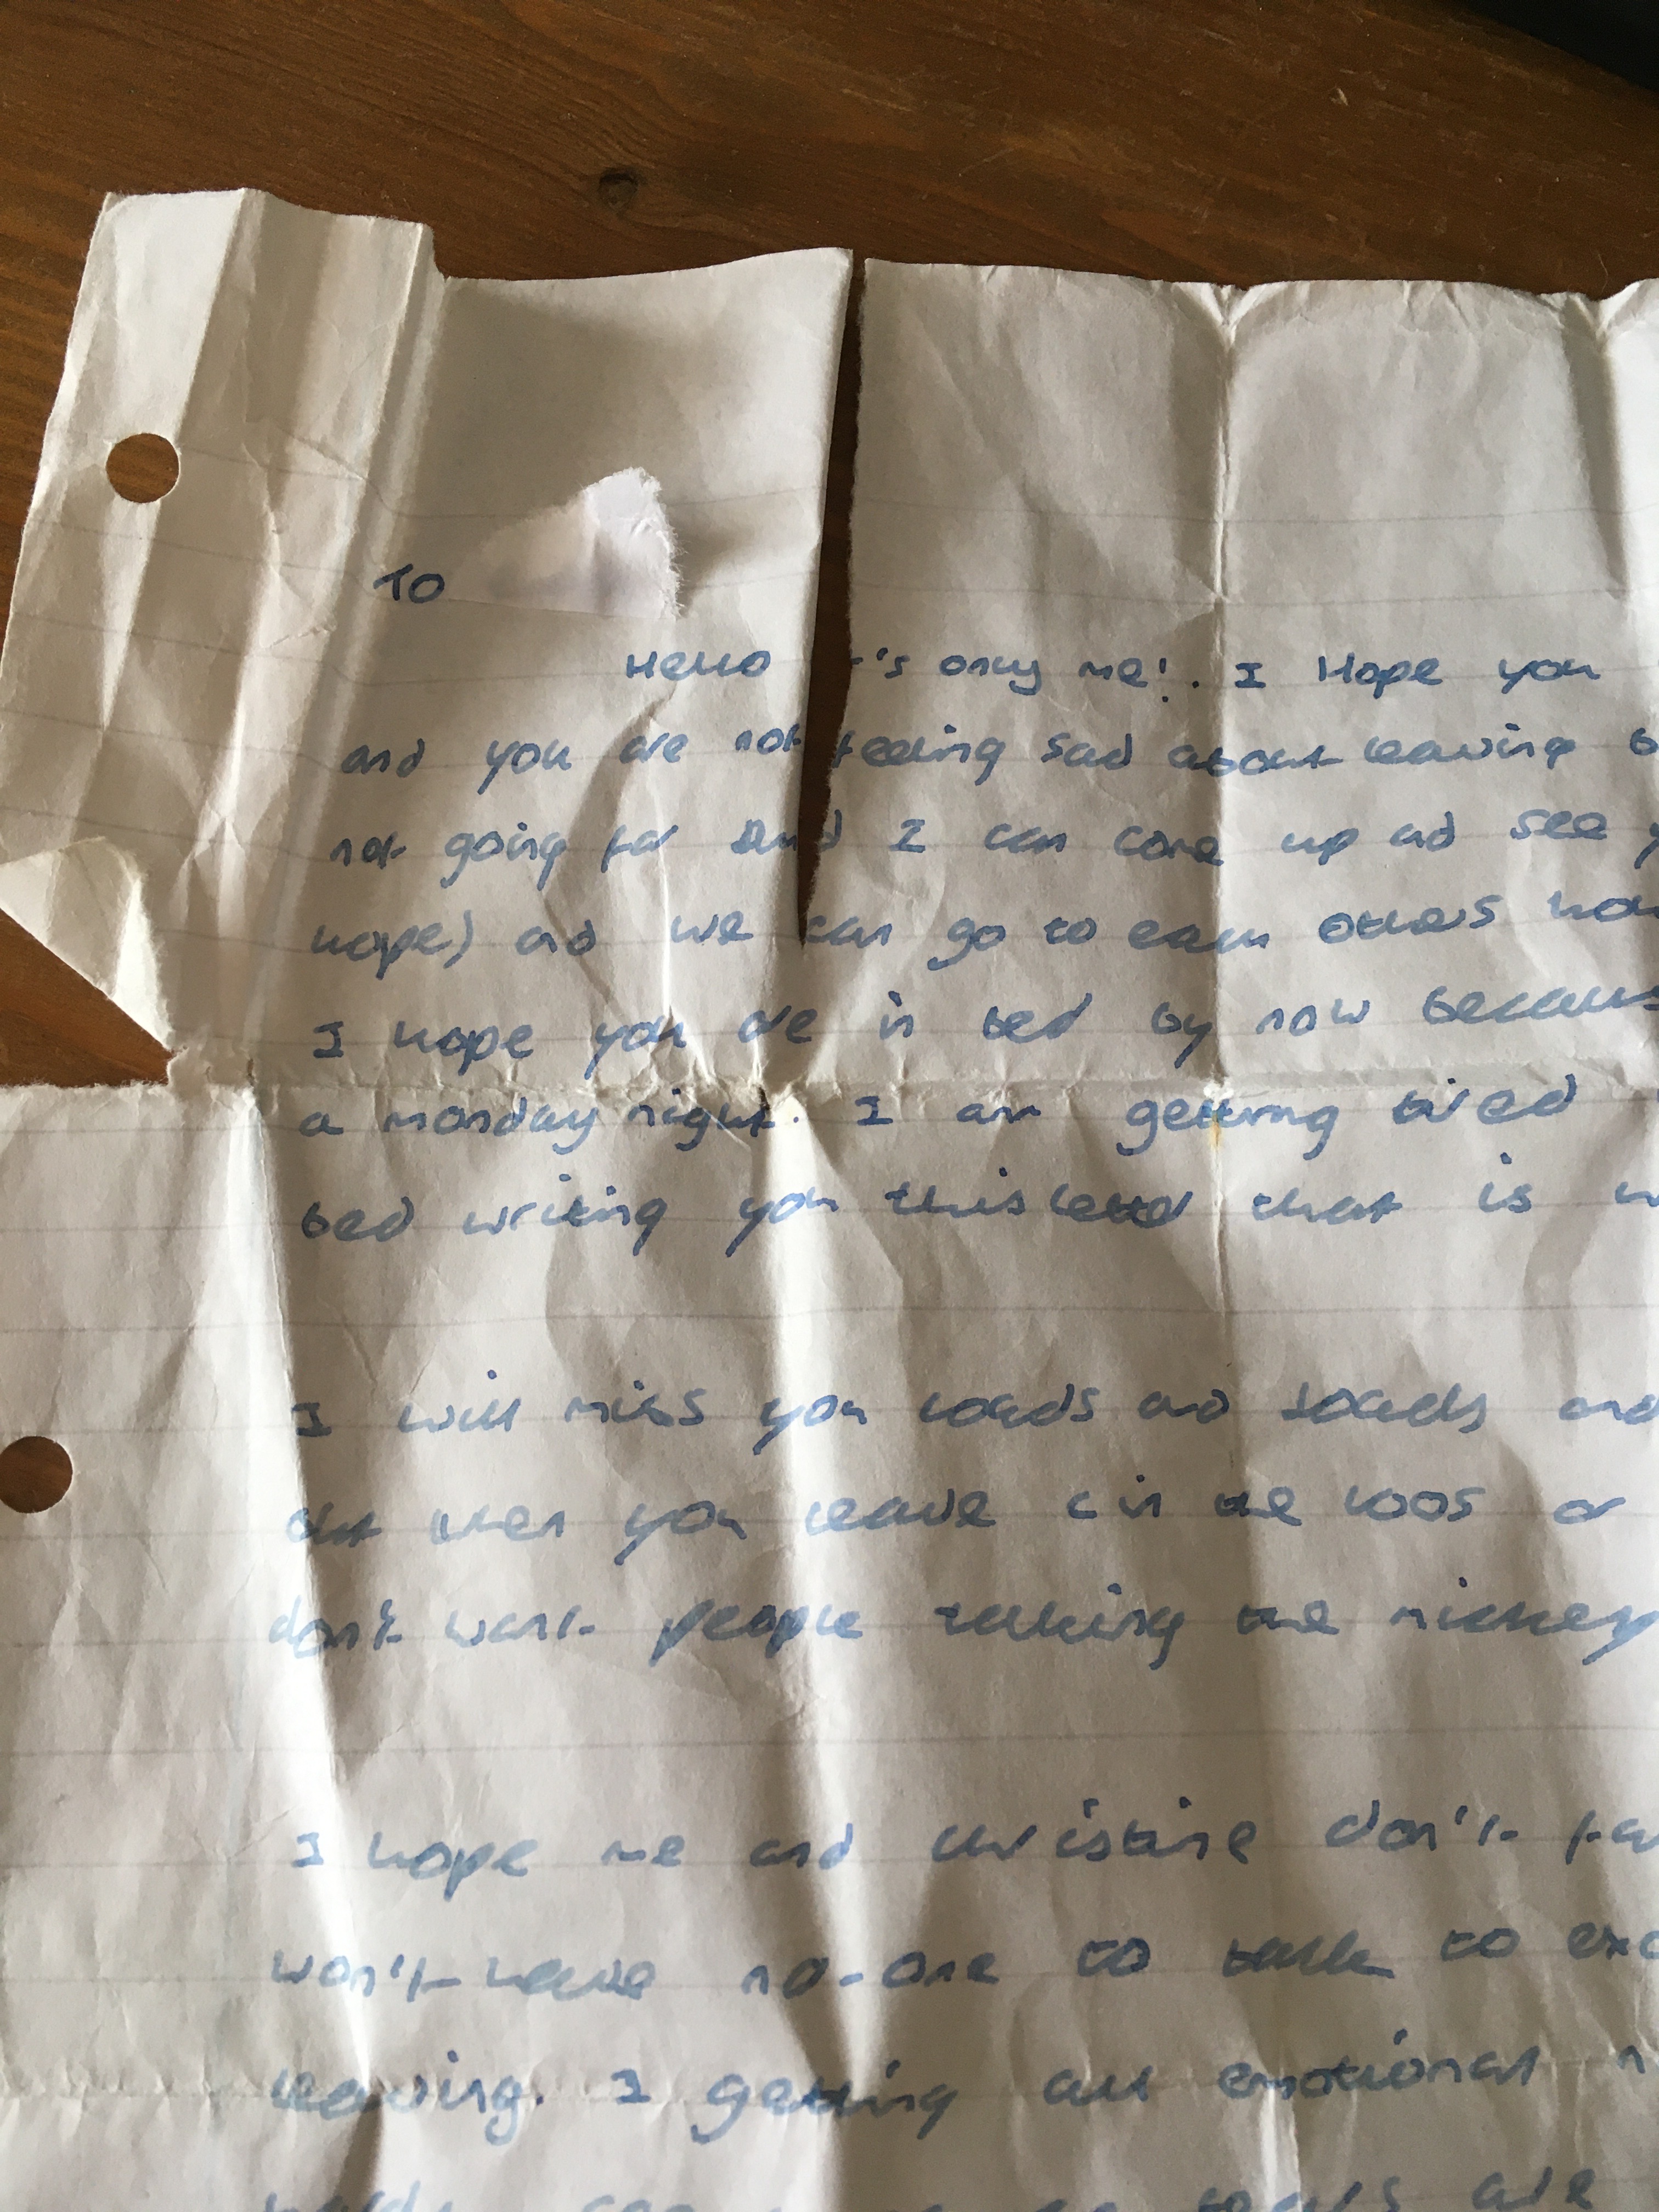 TO
Hello 's only me!. I Hope you
and you are not feeling sad about leaving
not going far and I can come up and see
hope) and we can go to each others
I hope you are in bed by now
a monday night. I am getting tired
bed writing you this letter that is
I will miss you loads and loads and
that when you leave in the loos or
don't want people taking the mickey
I hope me and christine don't
won't have no-one to talk to
leaving. I getting all emotional
are